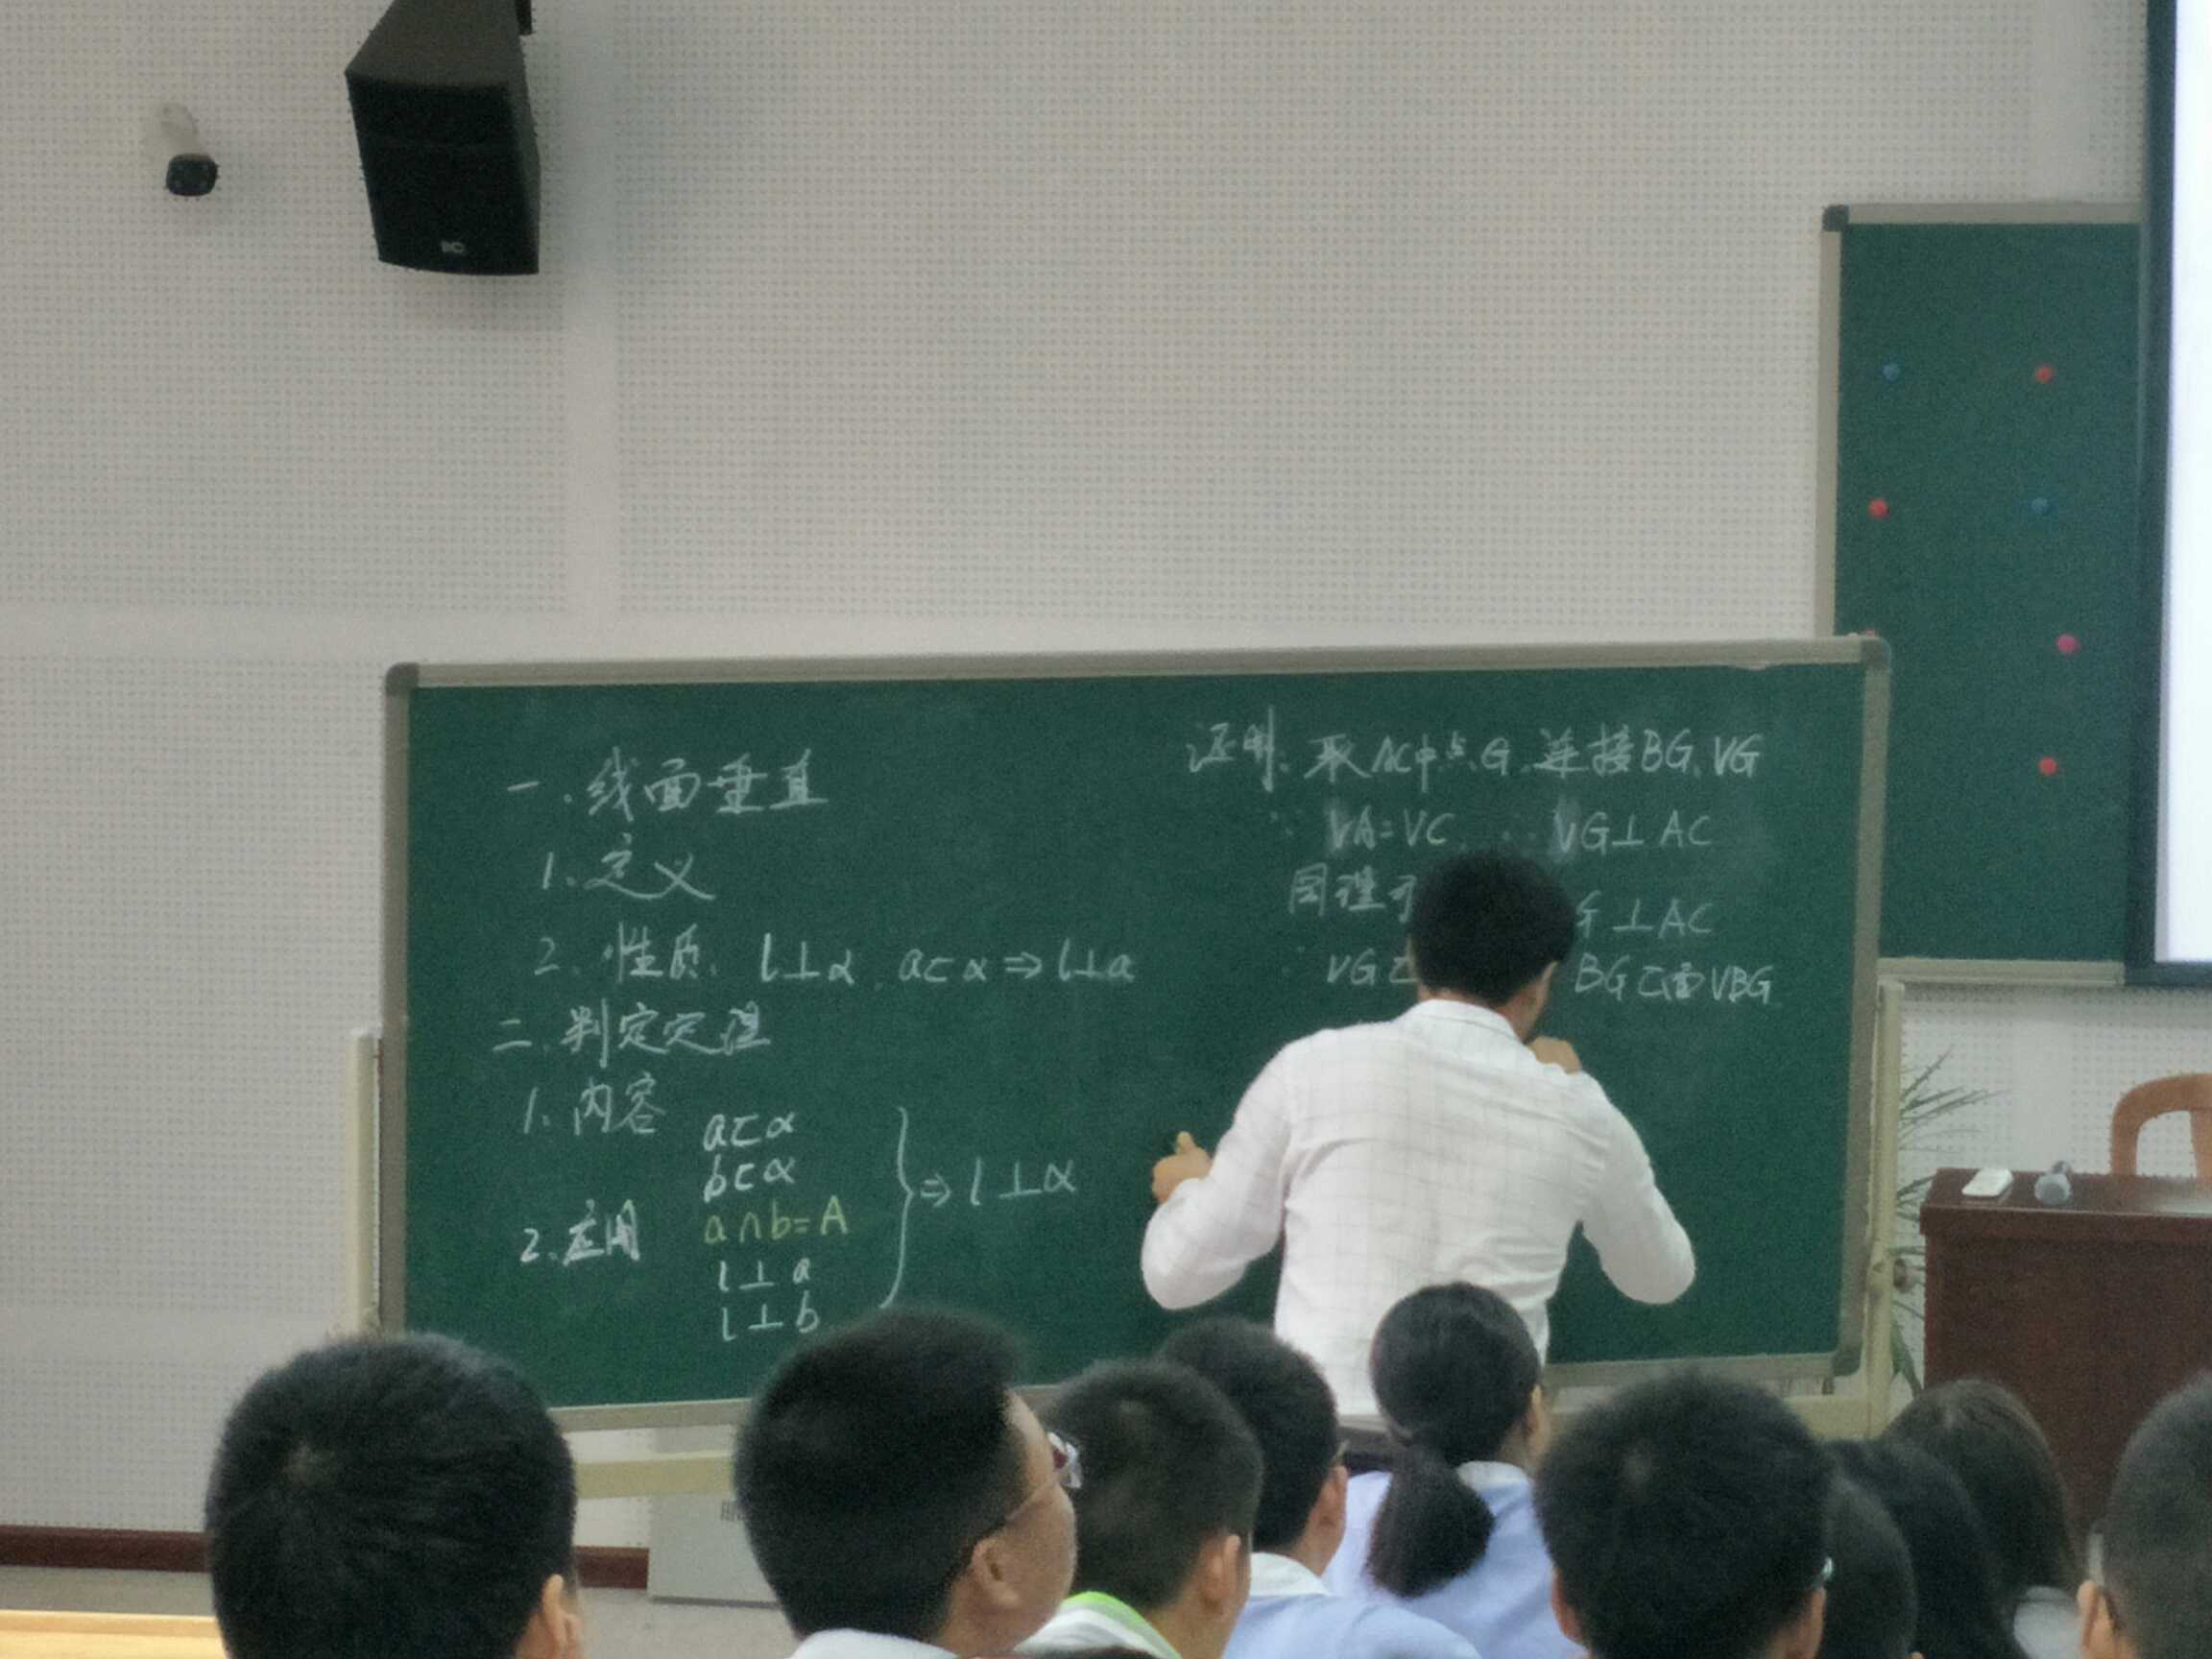 一、线面垂直
1、定义
2、性质、l⊥α、a⊂α⇒l⊥a
二、判定定理
1、内容
a⊂α
b⊂α
2、应用 a∩b=A ⇒l⊥α
l⊥a
l⊥b
证明:取AC中点G,连接BG、VG
∵ VA=VC ∴ VG⊥AC
同理可 ⊥AC
∵ VG⊂ BG⊂面VBG